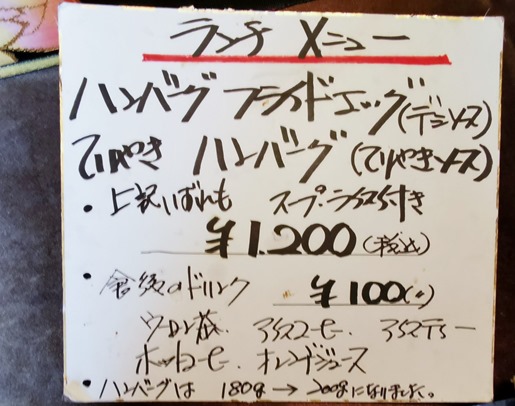 ランチ メニュー
ハンバーグ フライドエッグ(デミソース)
てりやき ハンバーグ(てりやきソース)
・上記いずれも スープ・ライス付き
¥1,200(税込)
・食後のドリンク ¥100(〃)
ウーロン茶・アイスコーヒー・アイスティー
ホットコーヒー・オレンジジュース
・ハンバーグは 180g→200gになりました。